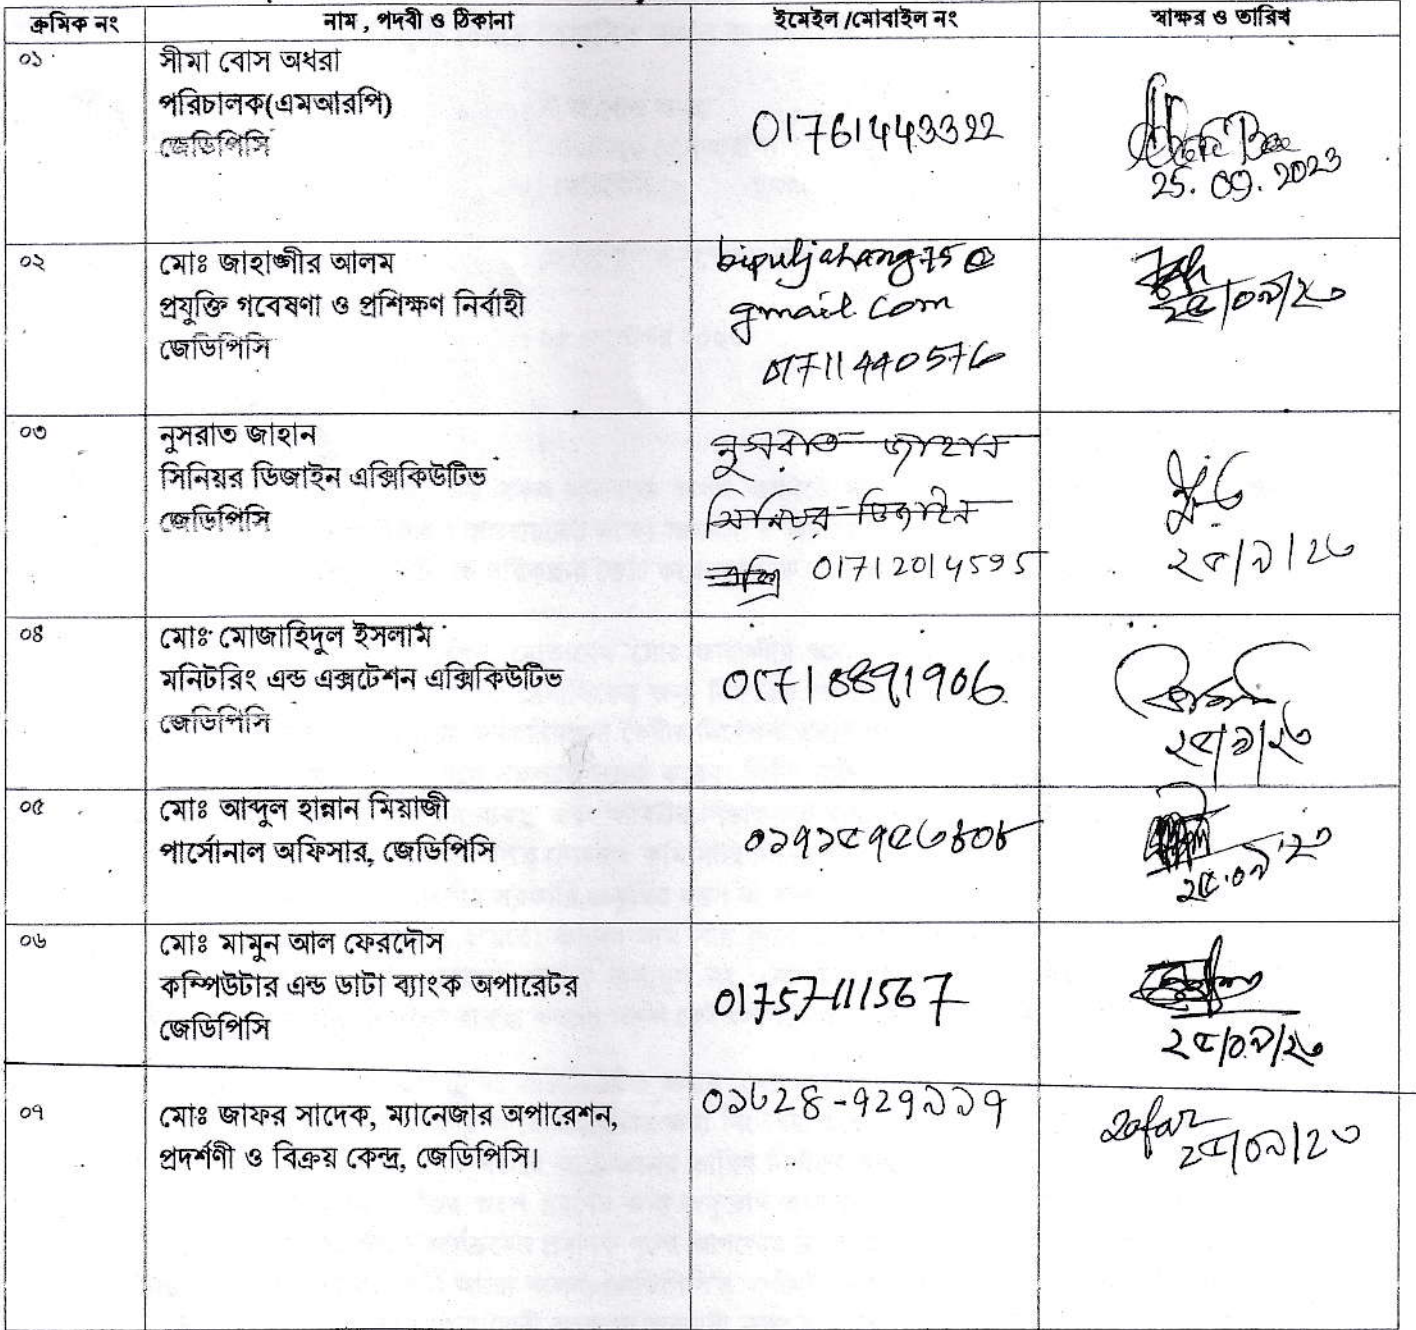 ক্রমিক নং নাম , পদবী ও ঠিকানা ইমেইল /মোবাইল নং স্বাক্ষর ও তারিখ
০১ সীমা বোস অধরা
পরিচালক(এমআরপি)
জেডিপিসি
01761443322
25. 09. 2023
০২ মোঃ জাহাঙ্গীর আলম
প্রযুক্তি গবেষণা ও প্রশিক্ষণ নির্বাহী
জেডিপিসি
bipuljahang75@
gmail.com
01711440576
২৫/০৯/২৩
০৩ নুসরাত জাহান
সিনিয়র ডিজাইন এক্সিকিউটিভ
জেডিপিসি
নুসরাত জাহান
সিনিয়র ডিজাইন
01712014595
২৫/৯/২৩
০৪ মোঃ মোজাহিদুল ইসলাম
মনিটরিং এন্ড এক্সটেশন এক্সিকিউটিভ
জেডিপিসি
01718891906
২৫/৯/২৩
০৫ মোঃ আব্দুল হান্নান মিয়াজী
পার্সোনাল অফিসার, জেডিপিসি
০১৭১৫৭৫৩৪০৮
২৫.০৯.২৩
০৬ মোঃ মামুন আল ফেরদৌস
কম্পিউটার এন্ড ডাটা ব্যাংক অপারেটর
জেডিপিসি
01757111567
২৫/০৯/২৩
০৭ মোঃ জাফর সাদেক, ম্যানেজার অপারেশন,
প্রদর্শনী ও বিক্রয় কেন্দ্র, জেডিপিসি।
০১৬28-৭2৭৯৯৭
Zafar
২৫/০৯/২৩